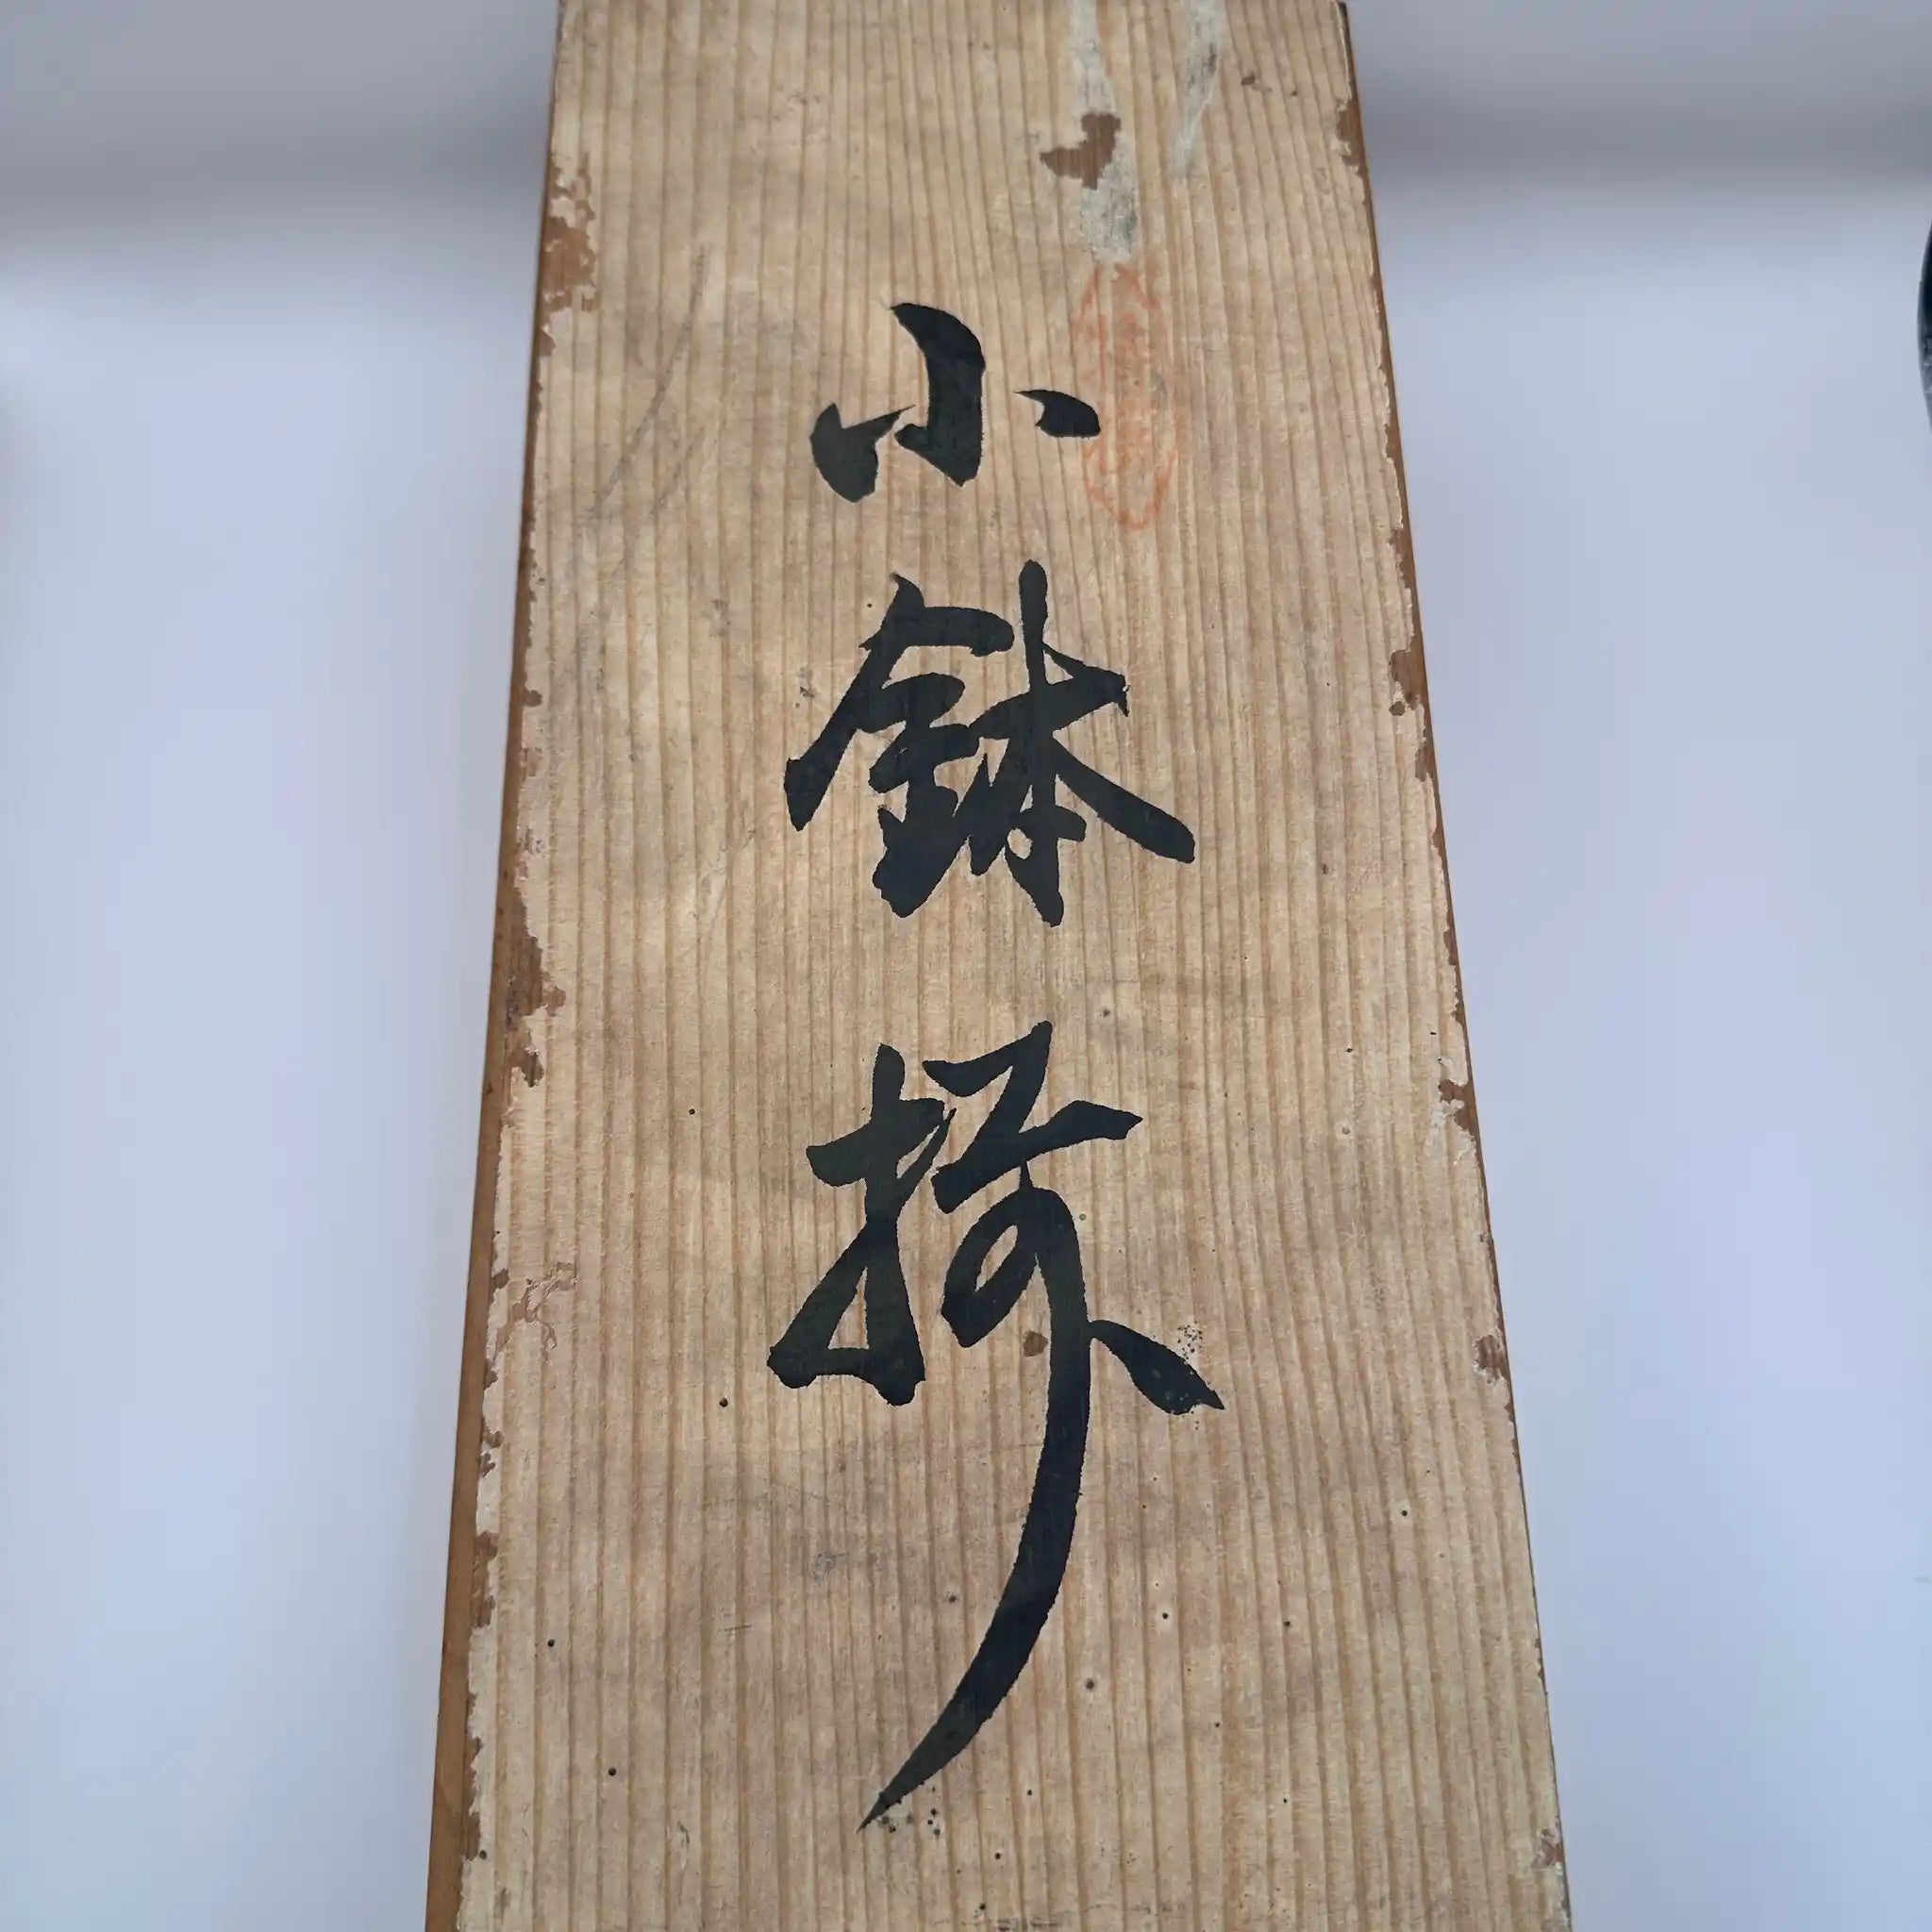 小鉢揃